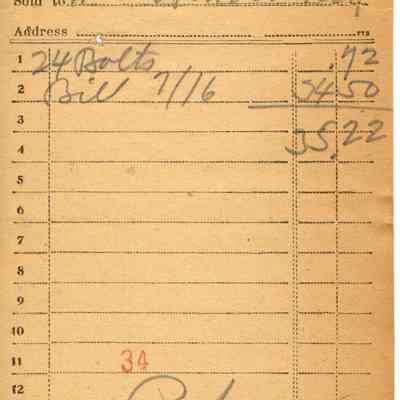 Sold to
Address
1 24 Bolts .72
2 Bill 7/16 34 50
3
4 35.22
5
6
7
8
9
10
11 34
12